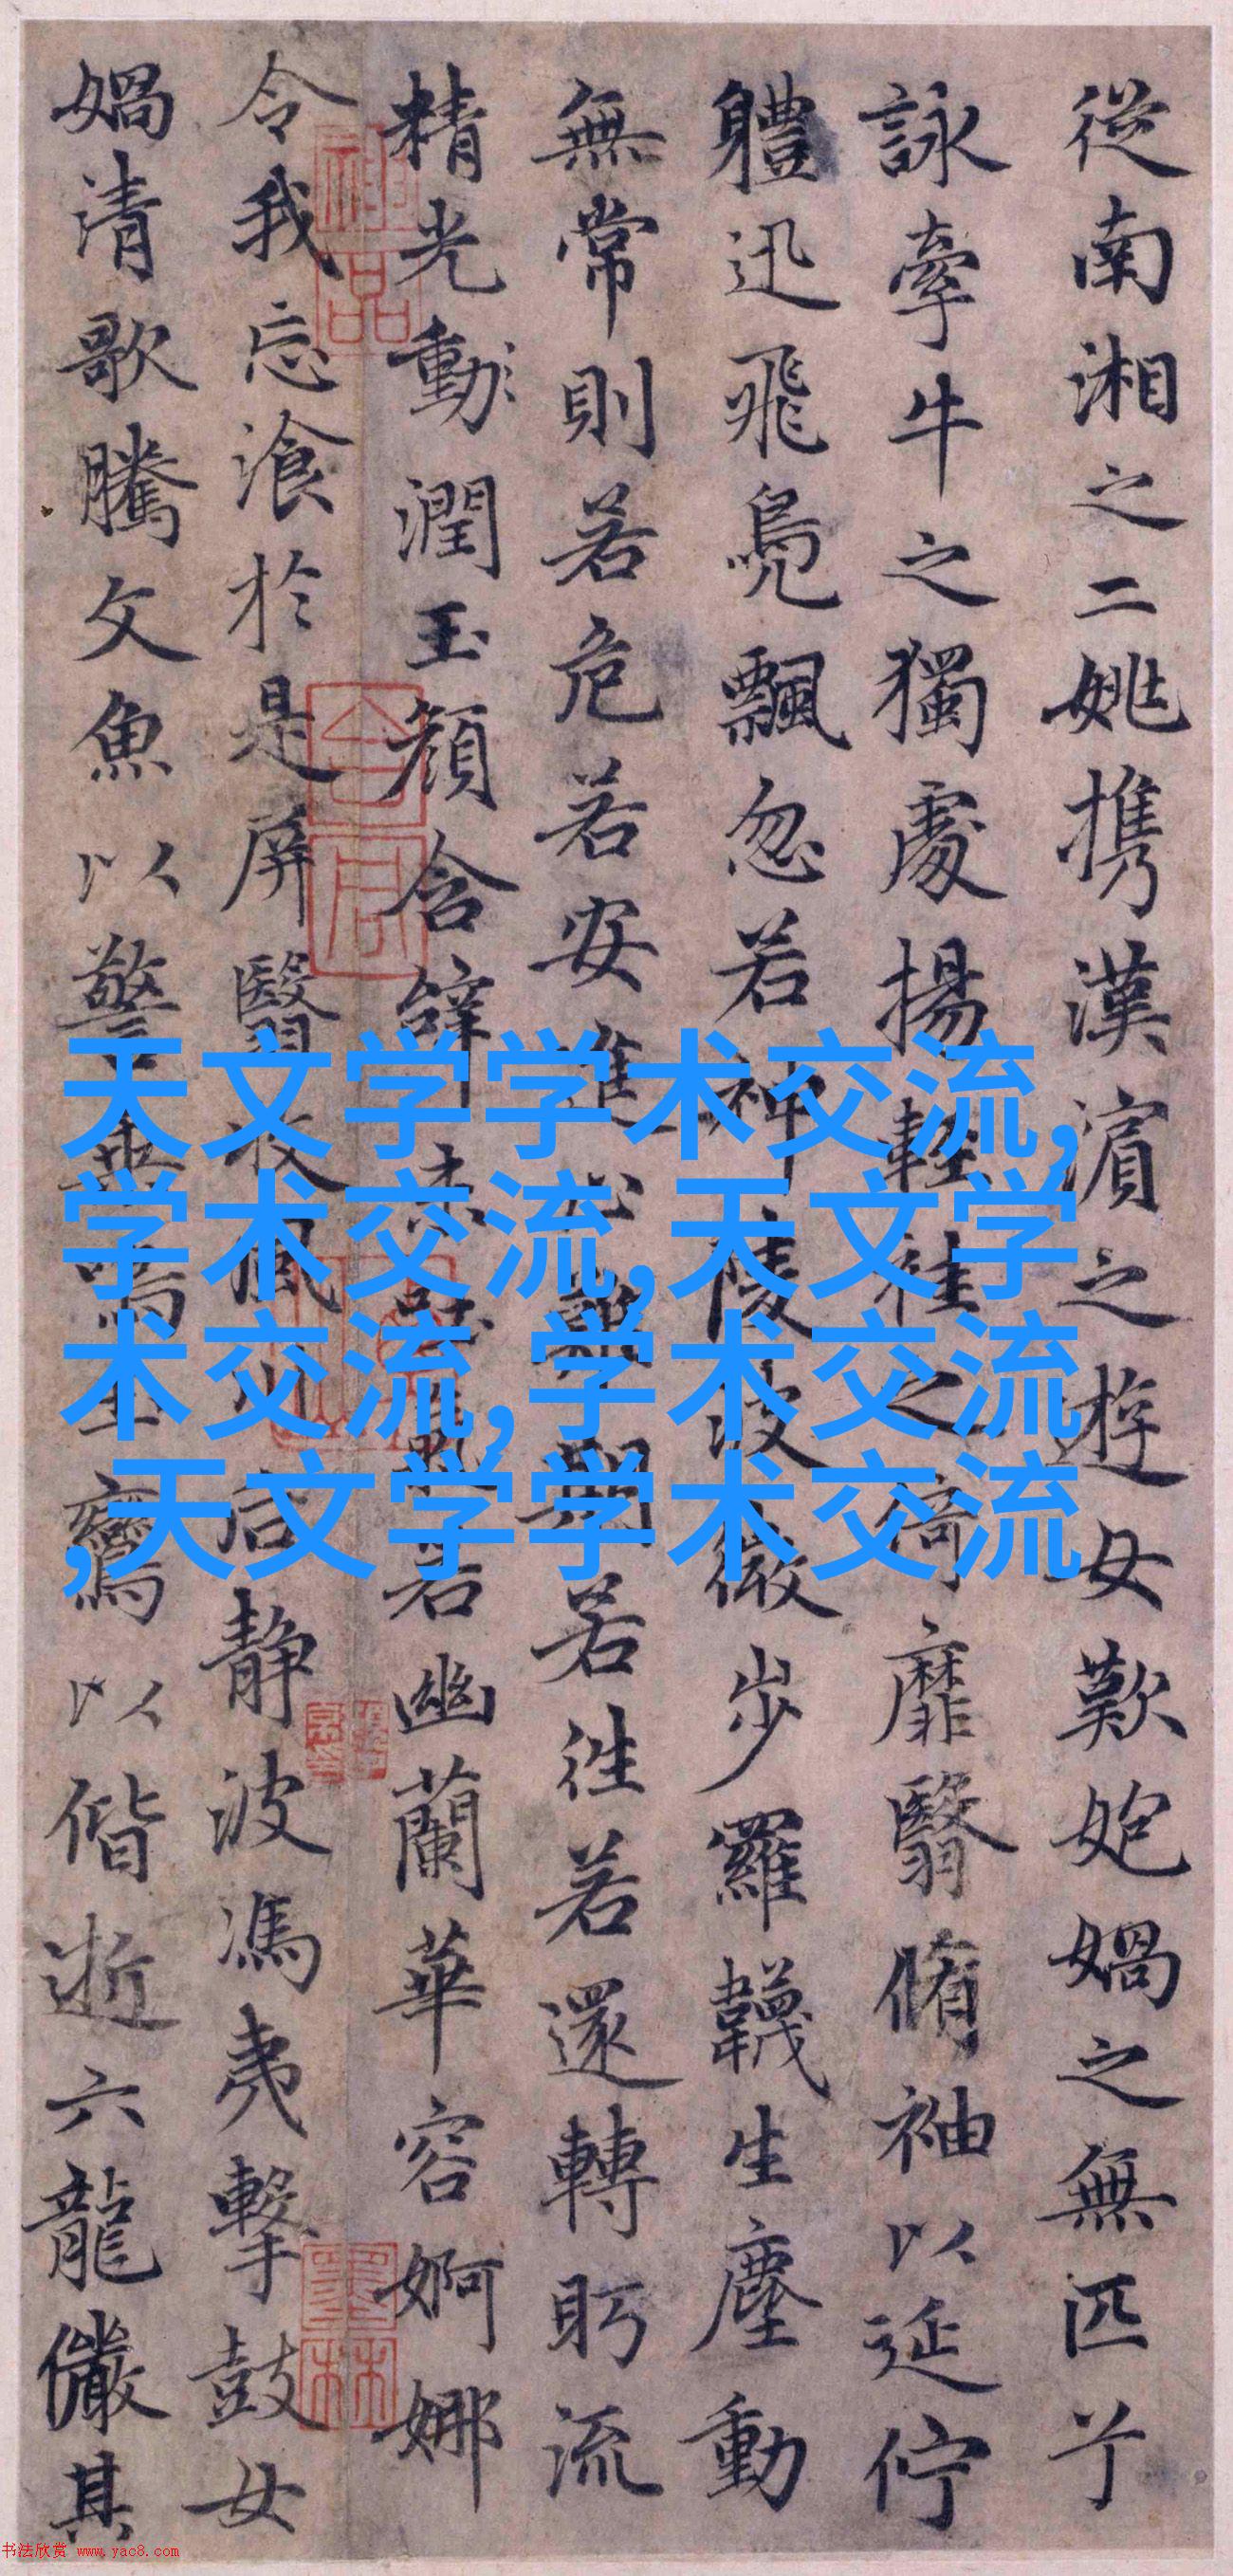 從南湘之二姚携漢濱之遊女歎㚿媧之無匹兮
詠牽牛之獨處揚輕袿之猗靡翳脩袖以延佇
軆迅飛鳧飄忽若神陵波微步羅韈生塵動
無常則若危若安進止難期若往若還轉眄流
精光動潤玉顏含辭未吐氣若幽蘭華容婀娜
令我忘飡於是屏翳收風川后靜波馮夷擊鼓女
媧清歌騰文魚以警乘鳴玉鸞以偕逝六龍儼其
神品
墨林
天文学学术交流,
学术交流,天文学学
术交流,学术交流
,天文学学术交流
书法欣赏 www.yac8.com